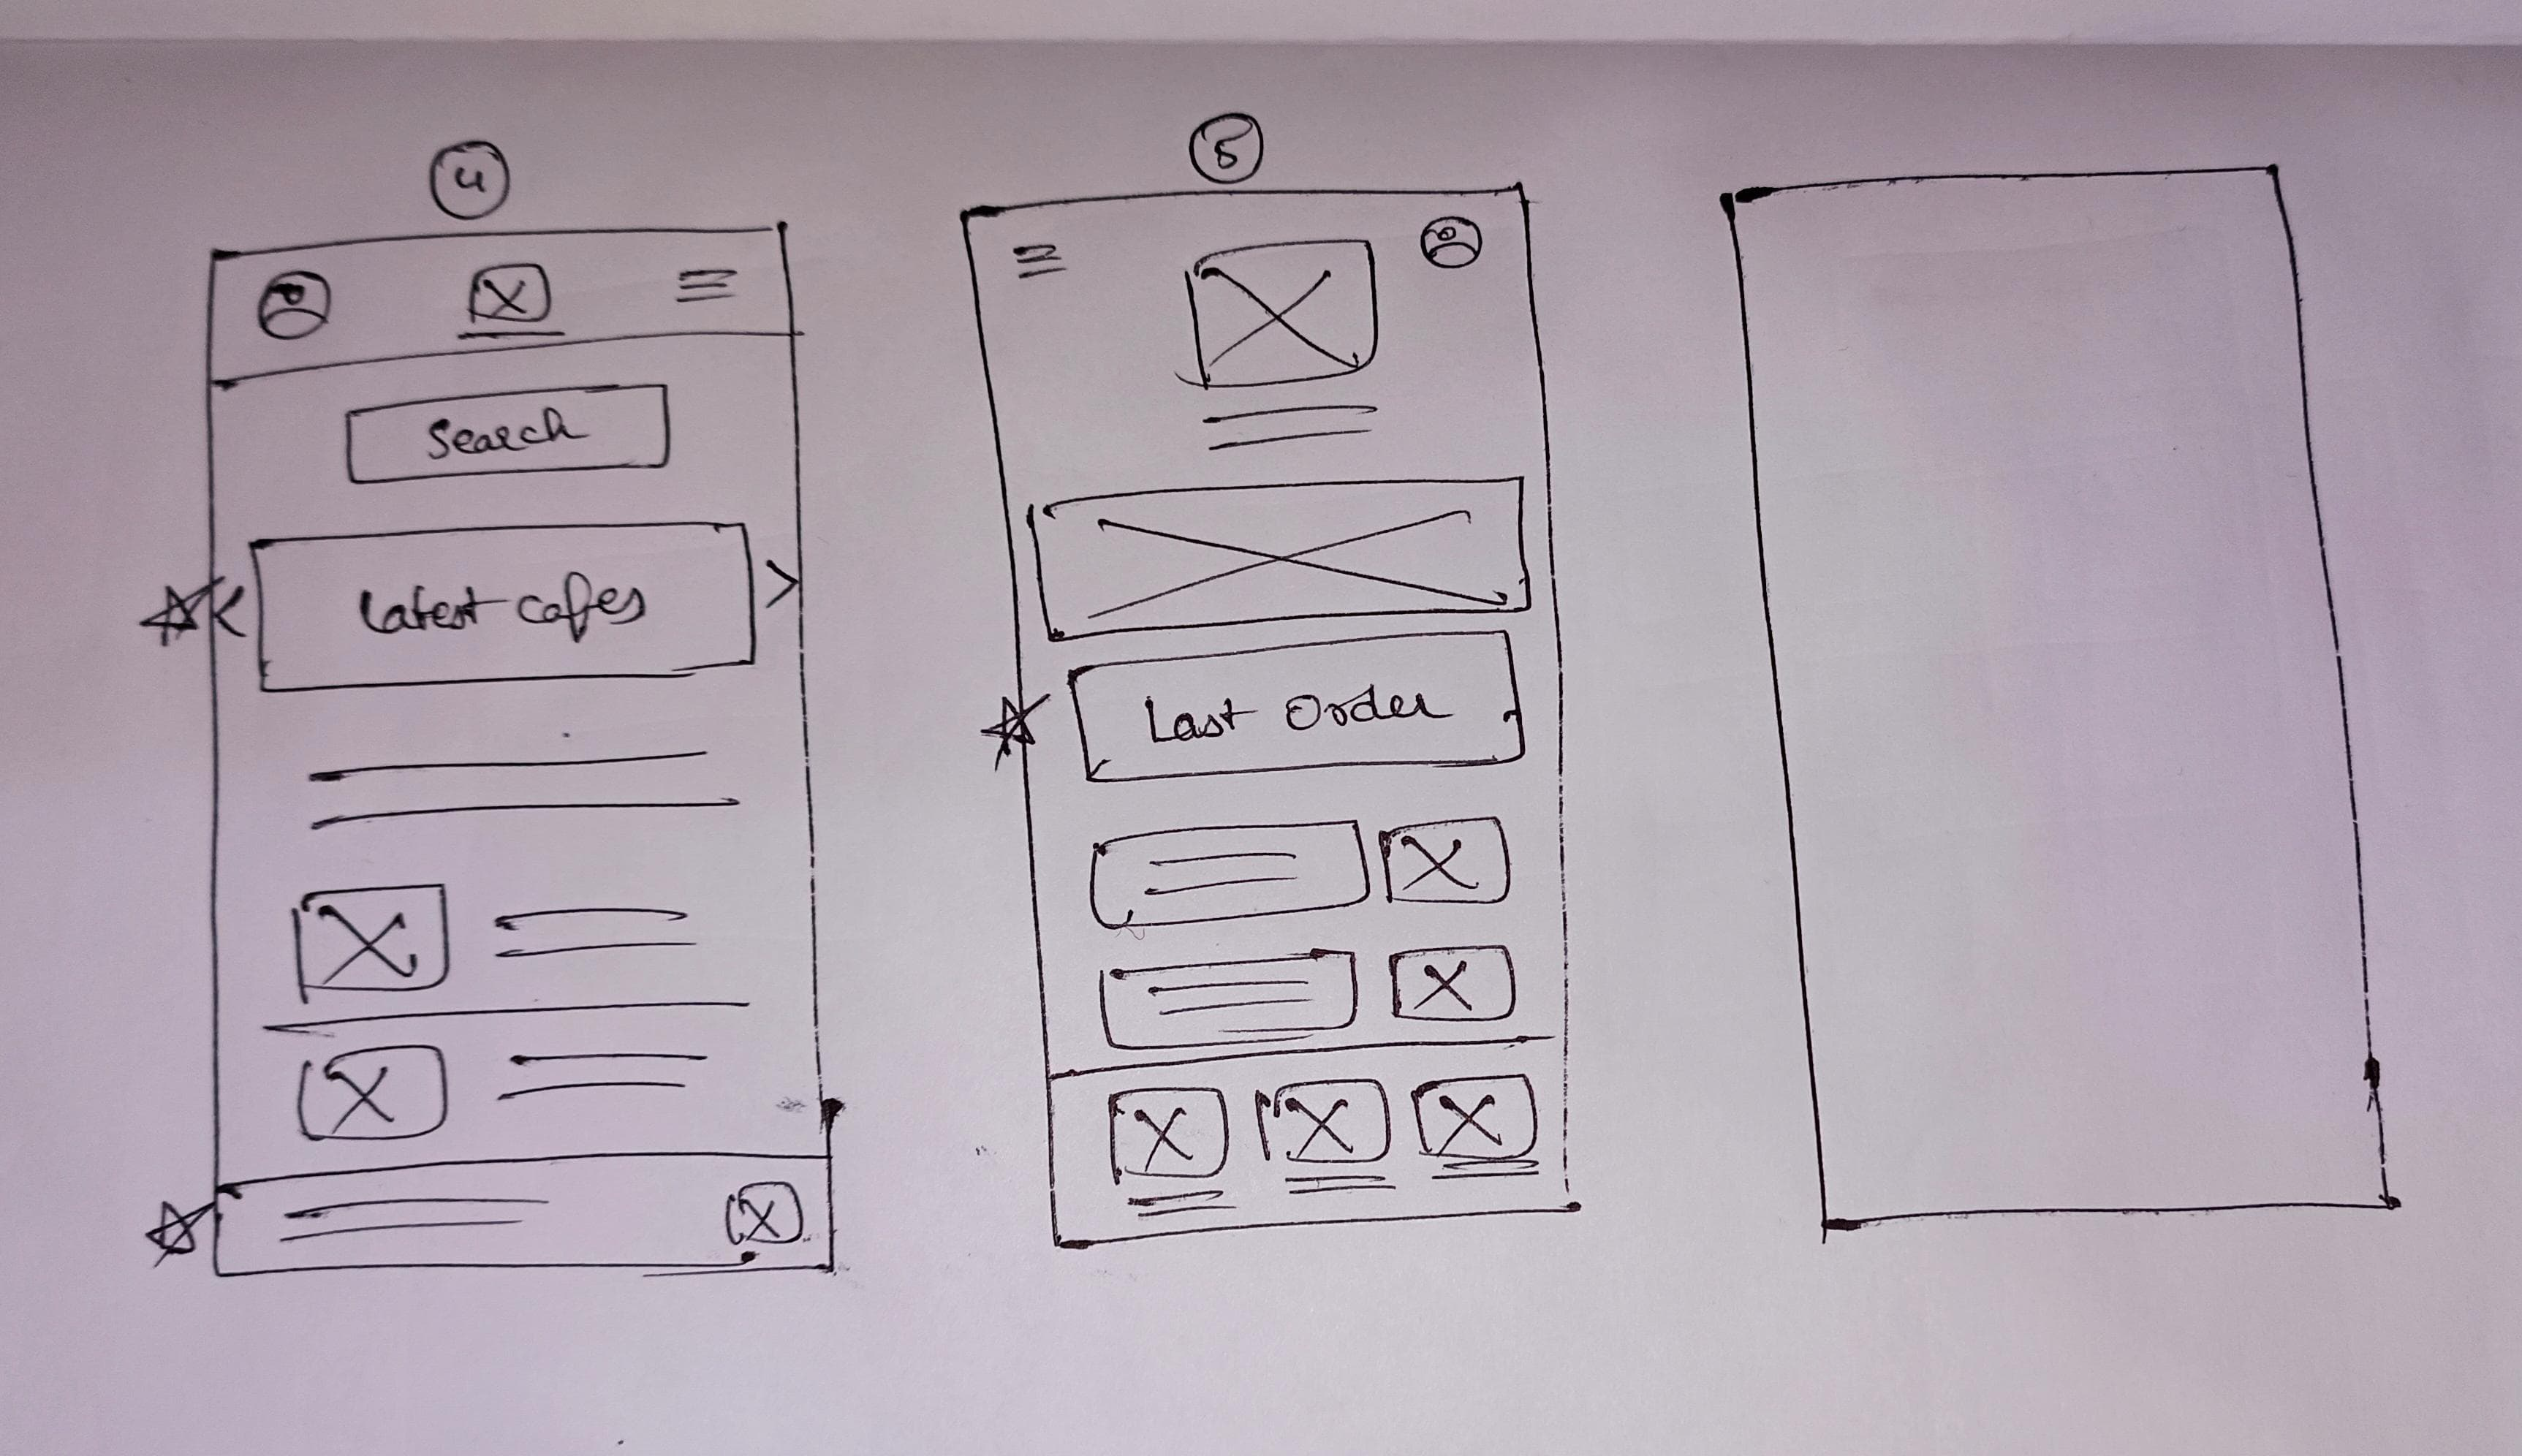 4
5
Search
Latest cafes
Last Order